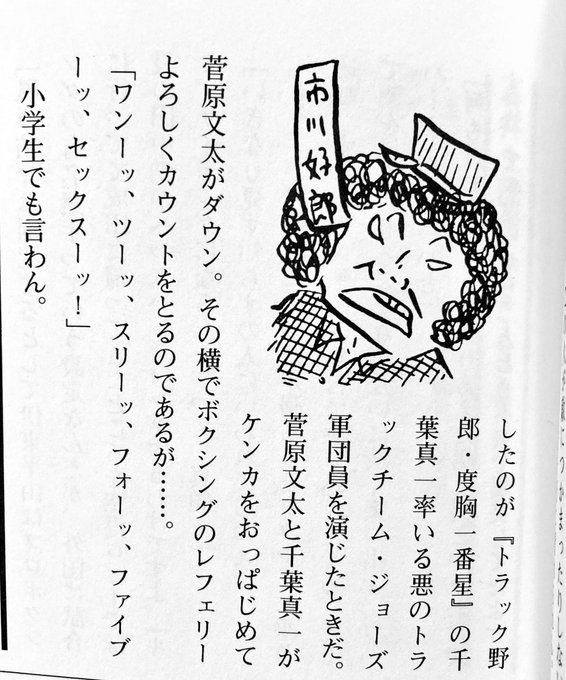 敵につかまったりしな
したのが『トラック野
郎・度胸一番星』の千
葉真一率いる悪のトラ
ックチーム・ジョーズ
軍団員を演じたときだ。
菅原文太と千葉真一が
ケンカをおっぱじめて
市川好郎
菅原文太がダウン。その横でボクシングのレフェリー
よろしくカウントをとるのであるが……。
「ワンーッ、ツーッ、スリーッ、フォーッ、ファイブ
ーッ、セックスーッ！」
小学生でも言わん。